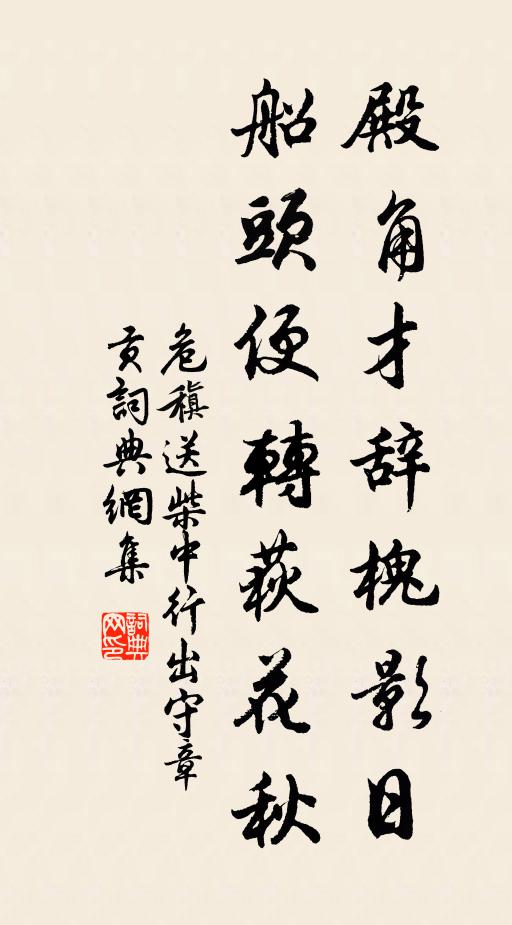 殿角才辞槐影日
船頭便轉萩花秋
危稹送柴中行出守章
贡詞典網集
詞典网印